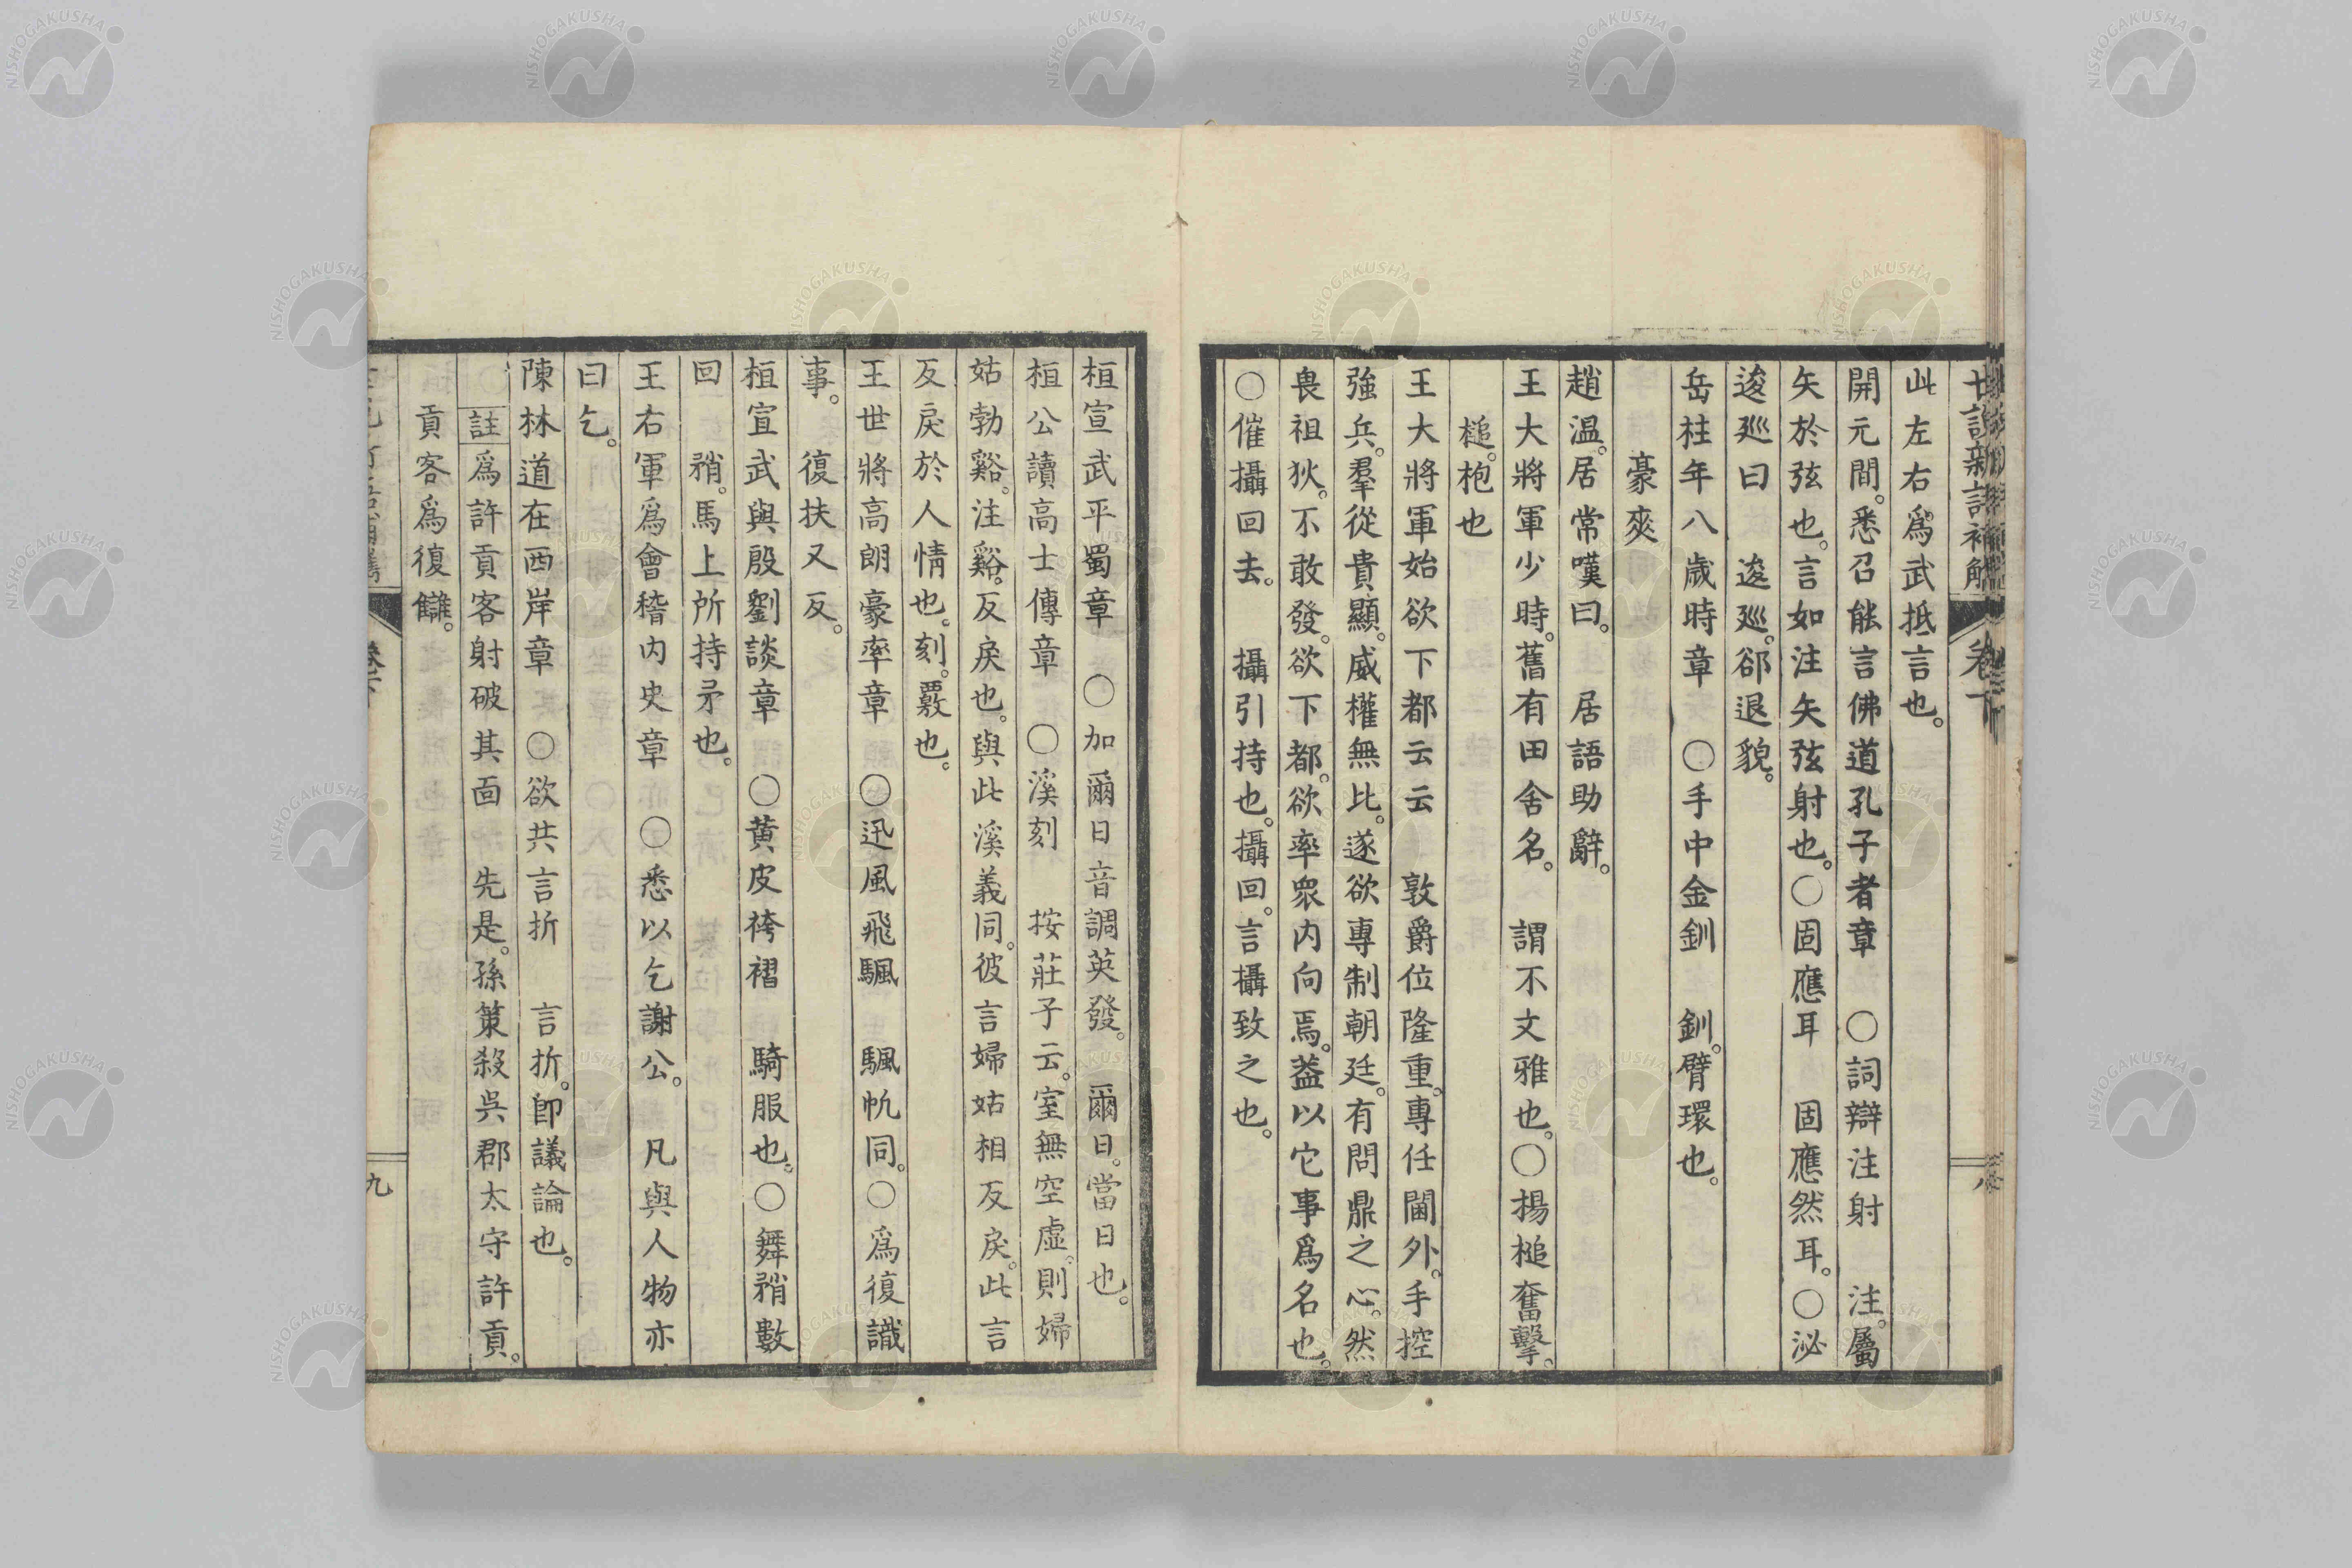 世說新語補觿 卷下 八
此左右爲武抵言也。
開元間。悉召能言佛道孔子者章 〇詞辯注射 注。屬
矢於弦也。言如注矢弦射也。〇固應耳 固應然耳。〇泌
逡廵曰 逡廵。郤退貌。
岳柱年八歲時章 〇手中金釧 釧。臂環也。
趙溫。居常嘆曰。 居語助辭。
豪爽
王大將軍少時。舊有田舍名。 謂不文雅也。〇揚槌奮擊。
槌。枹也
王大將軍始欲下都云云 敦爵位隆重。專任閫外。手控
強兵。羣從貴顯。威權無比。遂欲專制朝廷。有問鼎之心。然
畏祖狄。不敢發。欲下都。欲率衆内向焉。蓋以它事爲名也。
〇催攝回去。 攝引持也。攝回。言攝致之也。
桓宣武平蜀章 〇加爾日音調英發。 爾日。當日也。
桓公讀高士傳章 〇溪刻 按莊子云。室無空虛。則婦
姑勃谿。注谿。反戾也。與此溪義同。彼言婦姑相反戾。此言
反戾於人情也。刻。覈也。
王世將高朗豪率章 〇迅風飛颿 颿帆同。〇爲復識
事。 復扶又反。
桓宣武與殷劉談章 〇黄皮袴褶 騎服也。〇舞矟數
回 矟。馬上所持矛也。
王右軍爲會稽内史章 〇悉以乞謝公。 凡與人物亦
曰乞。
陳林道在西岸章 〇欲共言折 言折。卽議論也。
註 爲許貢客射破其面 先是。孫策殺吳郡太守許貢。
貢客爲復讎。
卷下 九
NISHOGAKUSHA